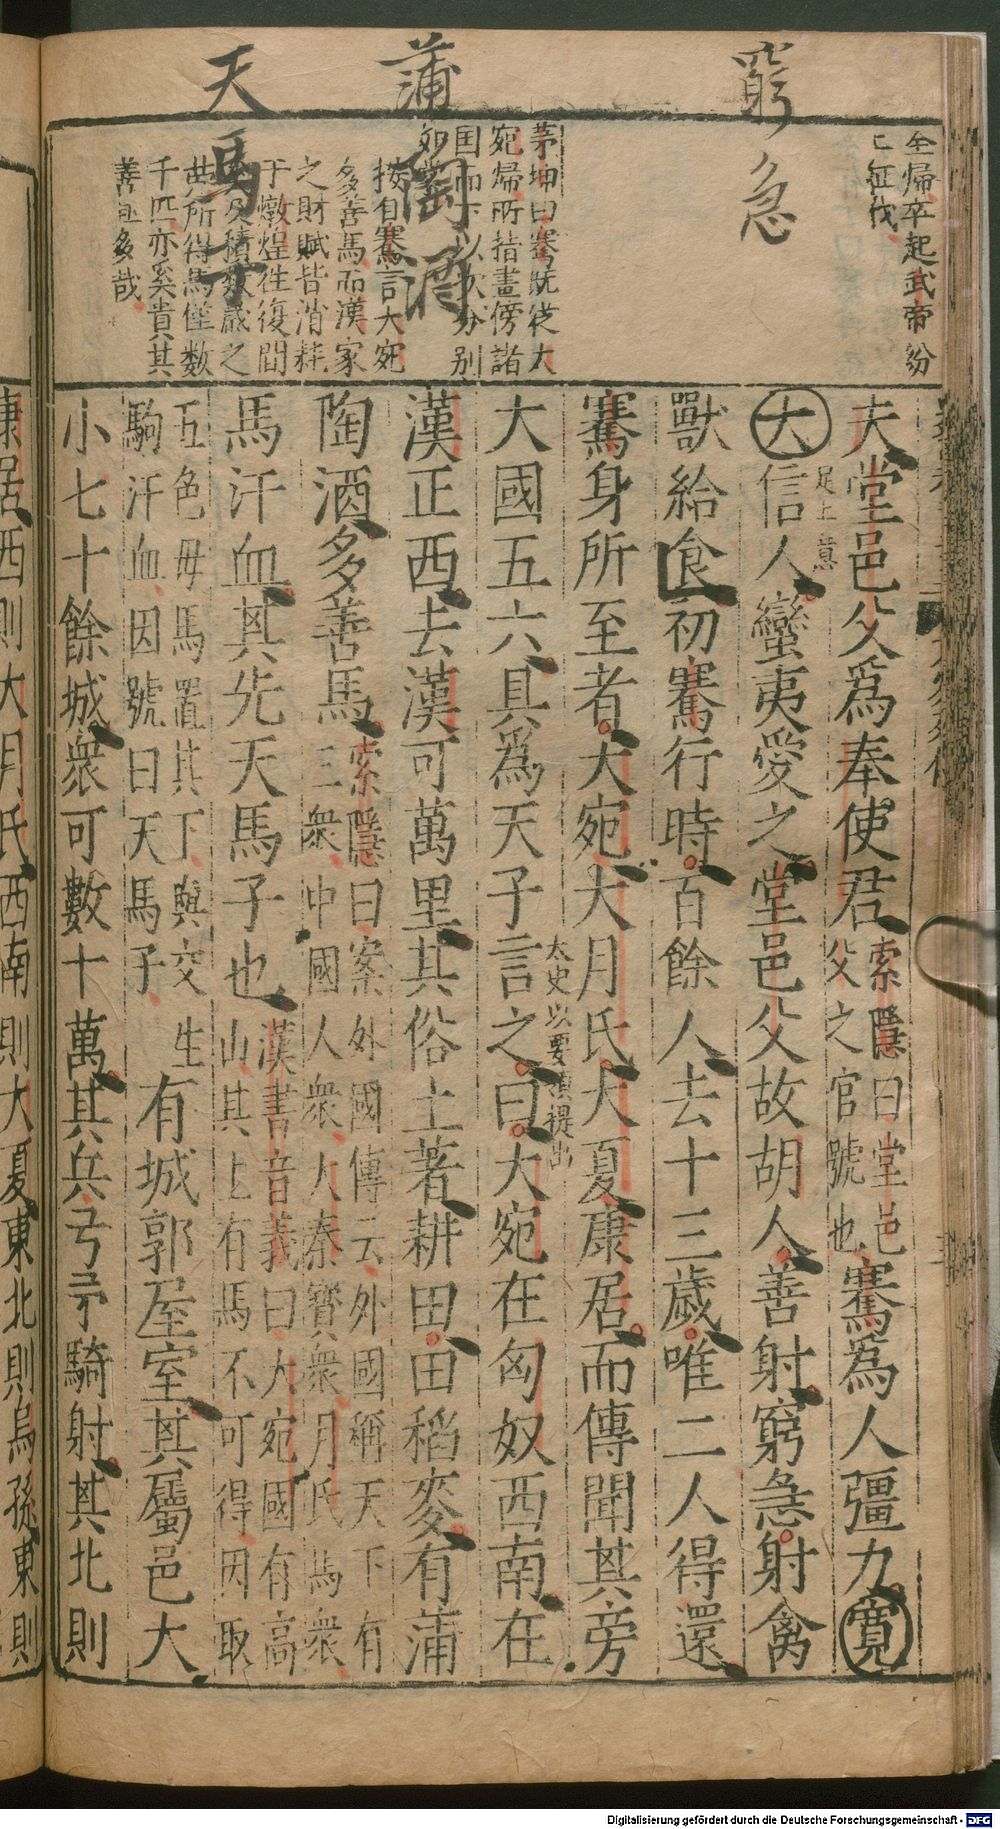 窮急
蒲陶酒
天馬子
全歸卒起武帝紛
征伐
茅坤曰騫旣從大
宛歸所指畫傍諸
國而下以次分別
如
按自騫言大宛
多善馬而漢家
之財賦皆消耗
于燉煌徃復間
及積數歲之
所得馬僅數
千匹亦奚貴其
善且多哉
夫堂邑父爲奉使君
索隱曰堂邑
父之官號也
騫爲人彊力寬
大信人蠻夷愛之堂邑父故胡人善射窮急射禽
足上意
獸給食初騫行時百餘人去十三歲唯二人得還
騫身所至者大宛大月氏大夏康居而傳聞其旁
大國五六具爲天子言之曰大宛在匈奴西南在
太史以要領提出
漢正西去漢可萬里其俗土著耕田田稻麥有蒲
陶酒多善馬
索隱曰案外國傳云外國稱天下有
三衆中國人衆大秦寶衆月氏馬衆
馬汗血其先天馬子也
漢書音義曰大宛國有高
山其上有馬不可得因取
五色母馬置其下與交生
駒汗血因號曰天馬子
有城郭屋室其屬邑大
小七十餘城衆可數十萬其兵弓矛騎射其北則
康居西則大月氏西南則大夏東北則烏孫東則
Digitalisierung gefördert durch die Deutsche Forschungsgemeinschaft - DFG